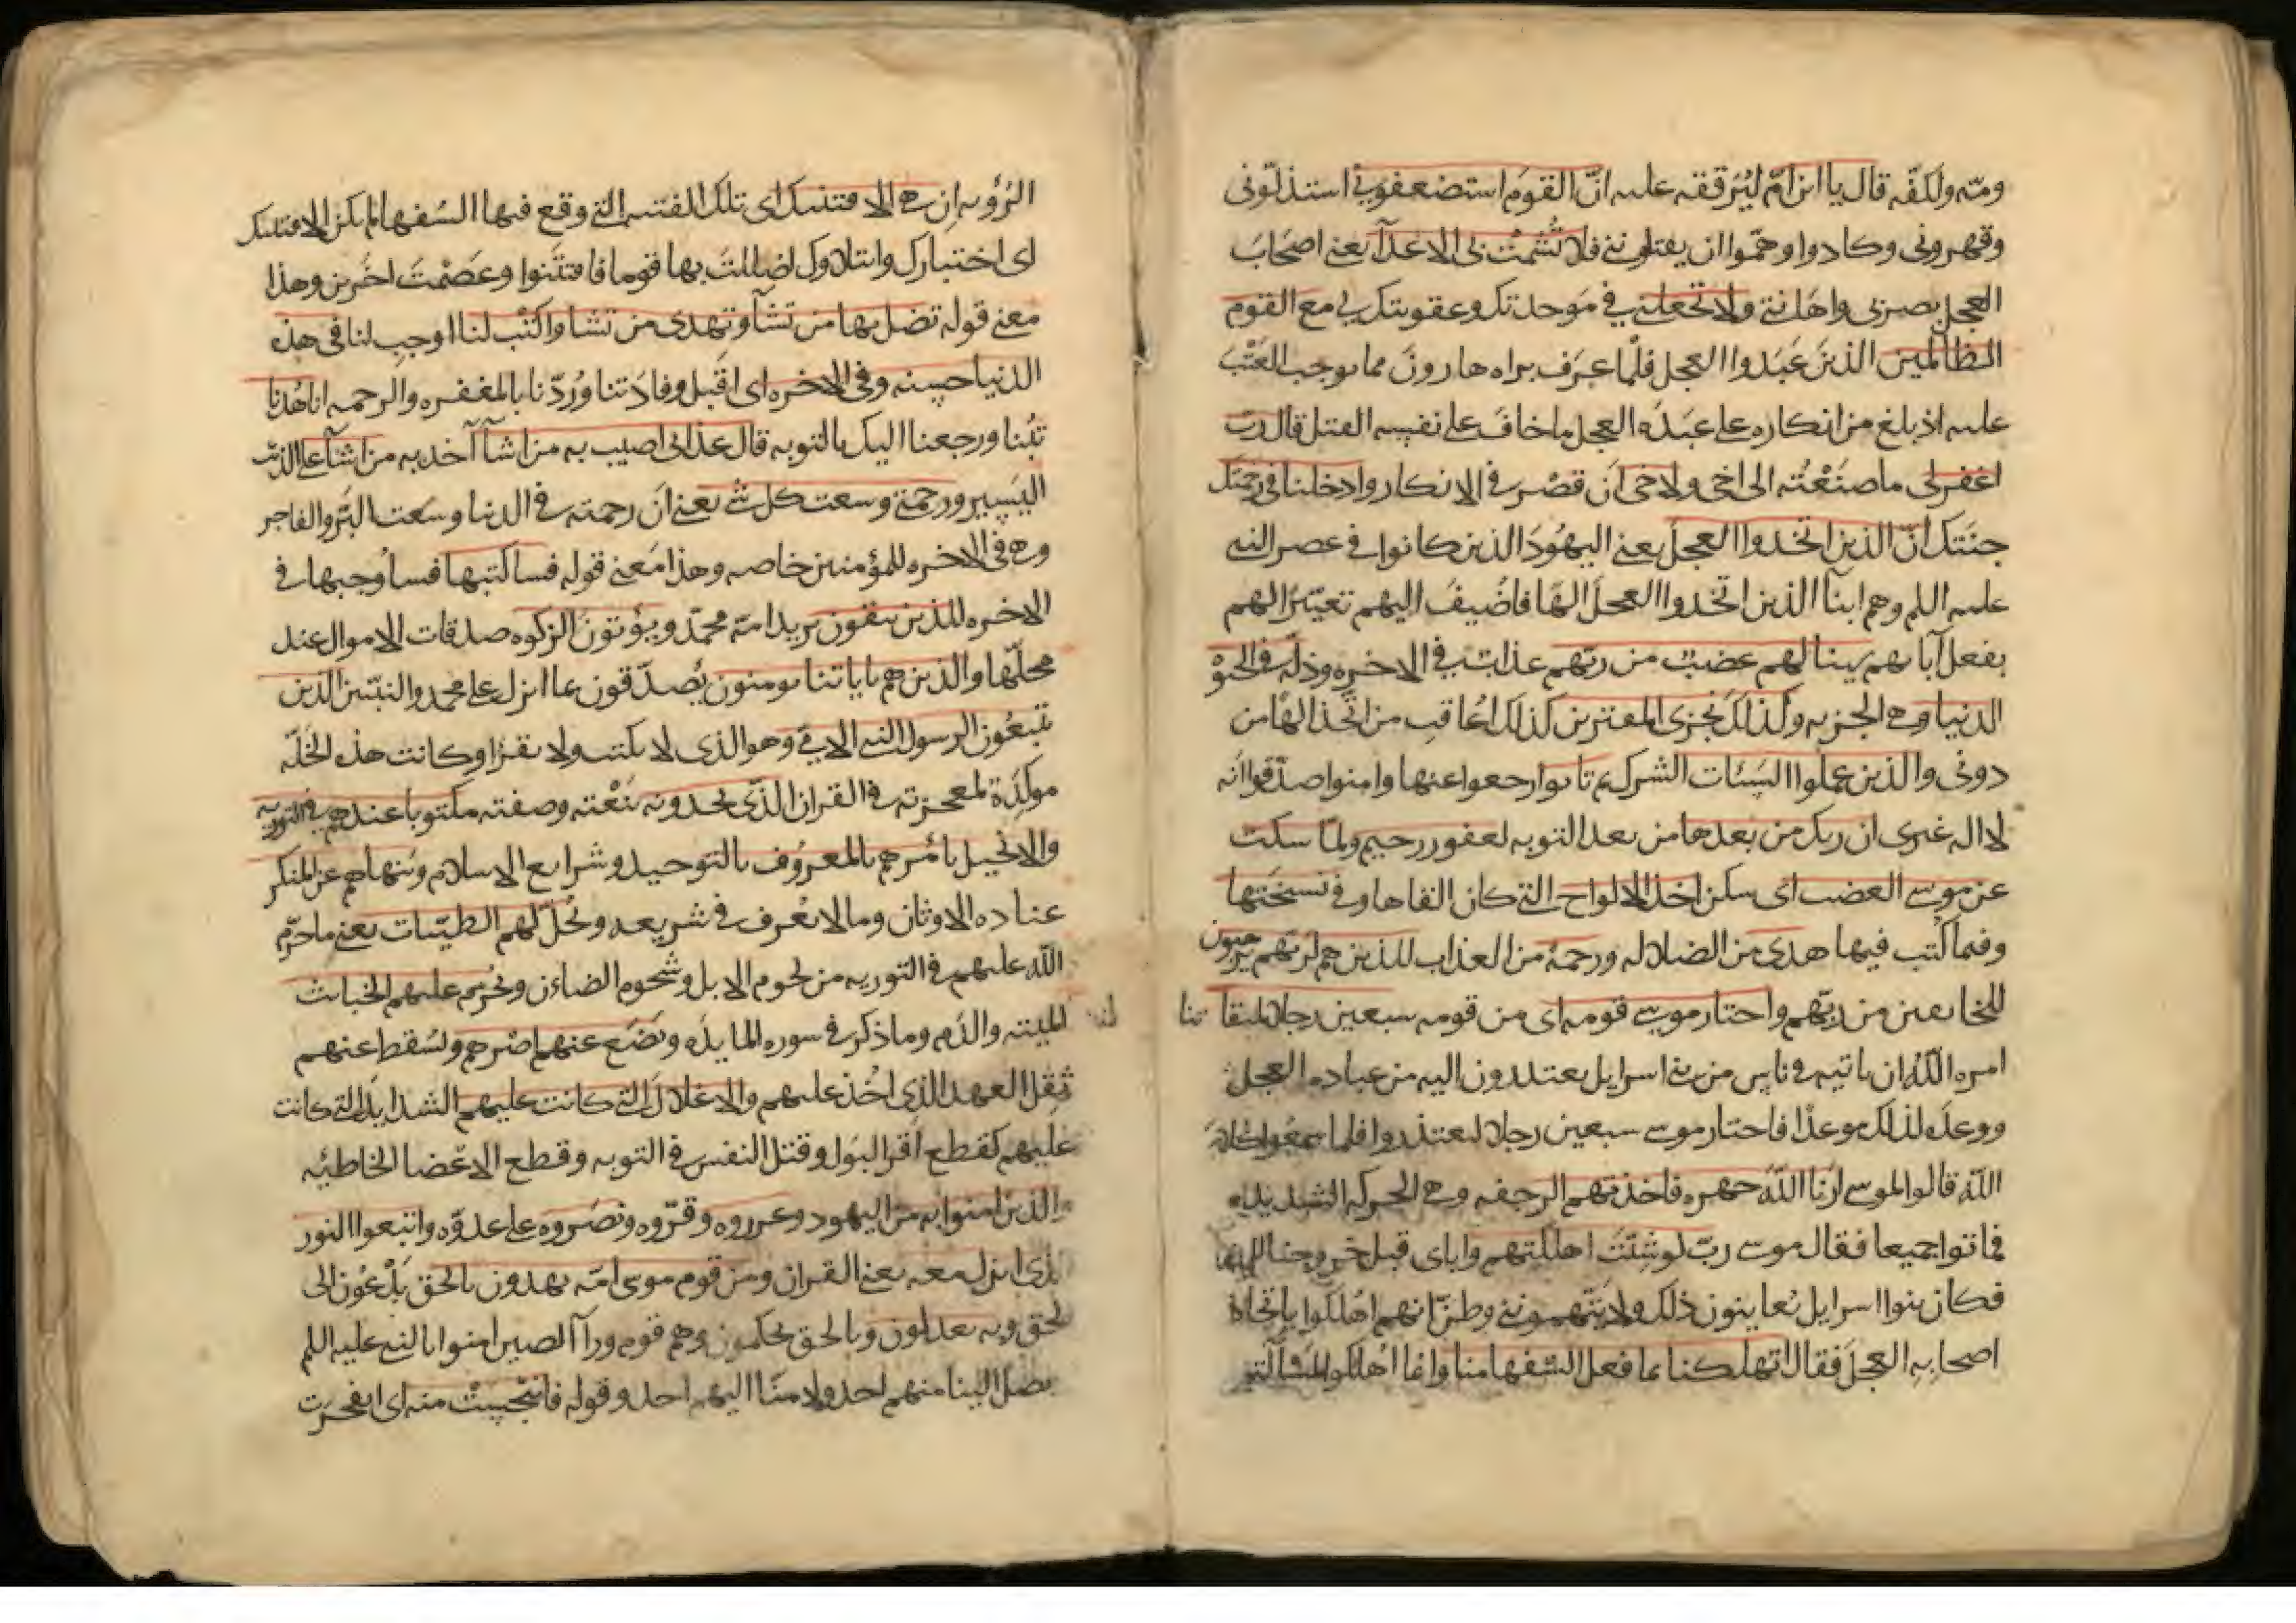 ومته ولكفّه قال يا ابن امّ ليُرققه عليه انّ القومَ استضعفوني استذلّوني
وقهروني وكادوا وهمّوا ان يقتلونني فلا تُشْمِتْ بي الاعدآ يعني اصحابَ
العجل بضربي واهانتي ولا تجعلني في مَوجدتك وعقوبتك لي مع القوم
الظالمين الذينَ عَبَدوا العجل فلمّا عرَف براه هارونَ مما يوجب العَتْبَ
عليه اذ بلغ من انكاره على عبَدَه العجل ما خافَ على نفسه القتل قال ربّ
اغفر لي ما صنَعْتُه الى اخي ولاخي ان قصّر في الانكار وادخلنا في رحمتك
جنتك انّ الذين اتخذوا العجل يعني اليهُودَ الذين كانوا في عصر النبي
عليه اللم وهم ابنآ الذين اتّخذوا العجلَ الهًا فاضُيفَ اليهم تعييرًا لهم
بفعل آبايهم سينالهم غضبٌ من ربّهم عذابٌ في الاخره وذلّه في الحيوْ
الدنيا وهي الجزيه وكذلك نجزى المفترين كذلك اُعاقب من اتّخذ الهًا من
دوني والذين عملوا السيّئات الشرك ثم تابوا رجعوا عنها وامنوا صدّقوا انّه
لا اله غيرى ان ربك من بعدها من بعد التوبه لغفور رحيم ولمّا سكت
عن موسى الغضب اى سكن اخذ الالواح التي كان القاها وفي نسختها
وفيما كُتب فيها هدى من الضلاله ورحمةٌ من العذاب للذين هم لربّهم يرهبون
للخايفين من ربّهم واختار موسى قومه اى من قومه سبعين رجلا لميقاتنا
امره اللّه ان ياتيه في ناس من بني اسرايل يعتذرون اليه من عباده العجل
ووعدَه لذلك موعدًا فاختار موسى سبعين رجلا ليعتذروا فلما سمعُوا كلامَ
اللّه قالوا لموسى ارنا اللّهَ جهره فاخذتهم الرجفه وهي الحركه الشديده
فماتوا جميعا فقال موسى ربّ لو شئتَ اهلكتهم واياى قبل خروجنا للميقات
فكان بنوا اسرايل يُعاينون ذلك ولا يتّهمونني وظنّ انهم اُهلكوا باتخاذ
اصحابه العجلَ فقال اتهلكنا بما فعل السّفها منا وانما اُهلكوا لمسألتهم
الرُؤيه اِن هي الا فتنتك اى تلك الفتنه التي وقع فيها السّفها لم يكن الا فتنتك
اى اختبارك وابتلاوك اضللتَ بها قوما فافتتنوا وعَصَمْتَ اخَرين وهذا
معنى قوله تضل بها من تشآ وتهدى من تشا واكتُب لنا اوجِب لنا في هذه
الدنيا حسنه وفي الاخره اى اقبل وفادَتنا ورُدّنا بالمغفره والرحمه انا هُدنا
تُبنا ورجعنا اليك بالتوبه قال عذابي اصيب به من اشآ آخذ به من اشآ على الذنب
اليَسير ورحمتي وسعت كل شي يعني انّ رحمته في الدنيا وسَعت البَرّ والفاجر
وهي في الاخره للمؤمنين خاصه وهذا مَعنى قوله فساكتبها فساُوجبها في
الاخره للذين يتقون يريد امّه محمّد ويؤتونَ الزكوه صدقات الاموال عند
محلّها والذين هم باياتنا يومنون يُصدّقون بما انزل على محمد والنبيّين الذين
يتّبعُون الرسول النبي الامّي وهو الذى لا يكتب ولا يقرا وكانت هذه الخَلّه
موكِدَة لمعجزته في القران الذى يجدونه بنَعْته وصفته مكتوبا عندهم في التوريه
والانجيل يامُرهم بالمعروُف بالتوحيد وشرايع الاسلام ويَنهاهم عن المنكر
عباده الاوثان وما لا يُعْرف في شريعه ويُحلّ لهم الطيّبات يعني ما حَرّم
اللّه عليهم في التوريه من لحوم الابل وشُحوم الضاءن ويُحرّم عليهم الخبائث
الميته والدَم وما ذكر في سوره المايدَه ويَضَع عنهم اصْرهم ويُسْقط عنهم
ثِقلَ العهد الذى اُخذ عليهم والاغلالَ التي كانت عليهم الشدايدَ التي كانت
عليهم كقطع اثر البَول وقتل النفس في التوبه وقطع الاعْضا الخاطيه
فالذين امنوا به من اليهود وعزروه وقّروه ونصَروه على عدوّه واتبعوا النور
الذى انزل معه يعني القران ومن قوم موسى امّه يهدون بالحق يَدْعُون الى
الحق وبه يعدلون وبالحق يحكمون وهم قوم ورآ الصين امنوا بالنبي عليه اللم
يصل الينا منهم احد ولا منّا اليهم احد وقوله فانبَجَستْ منه اى انفجرت